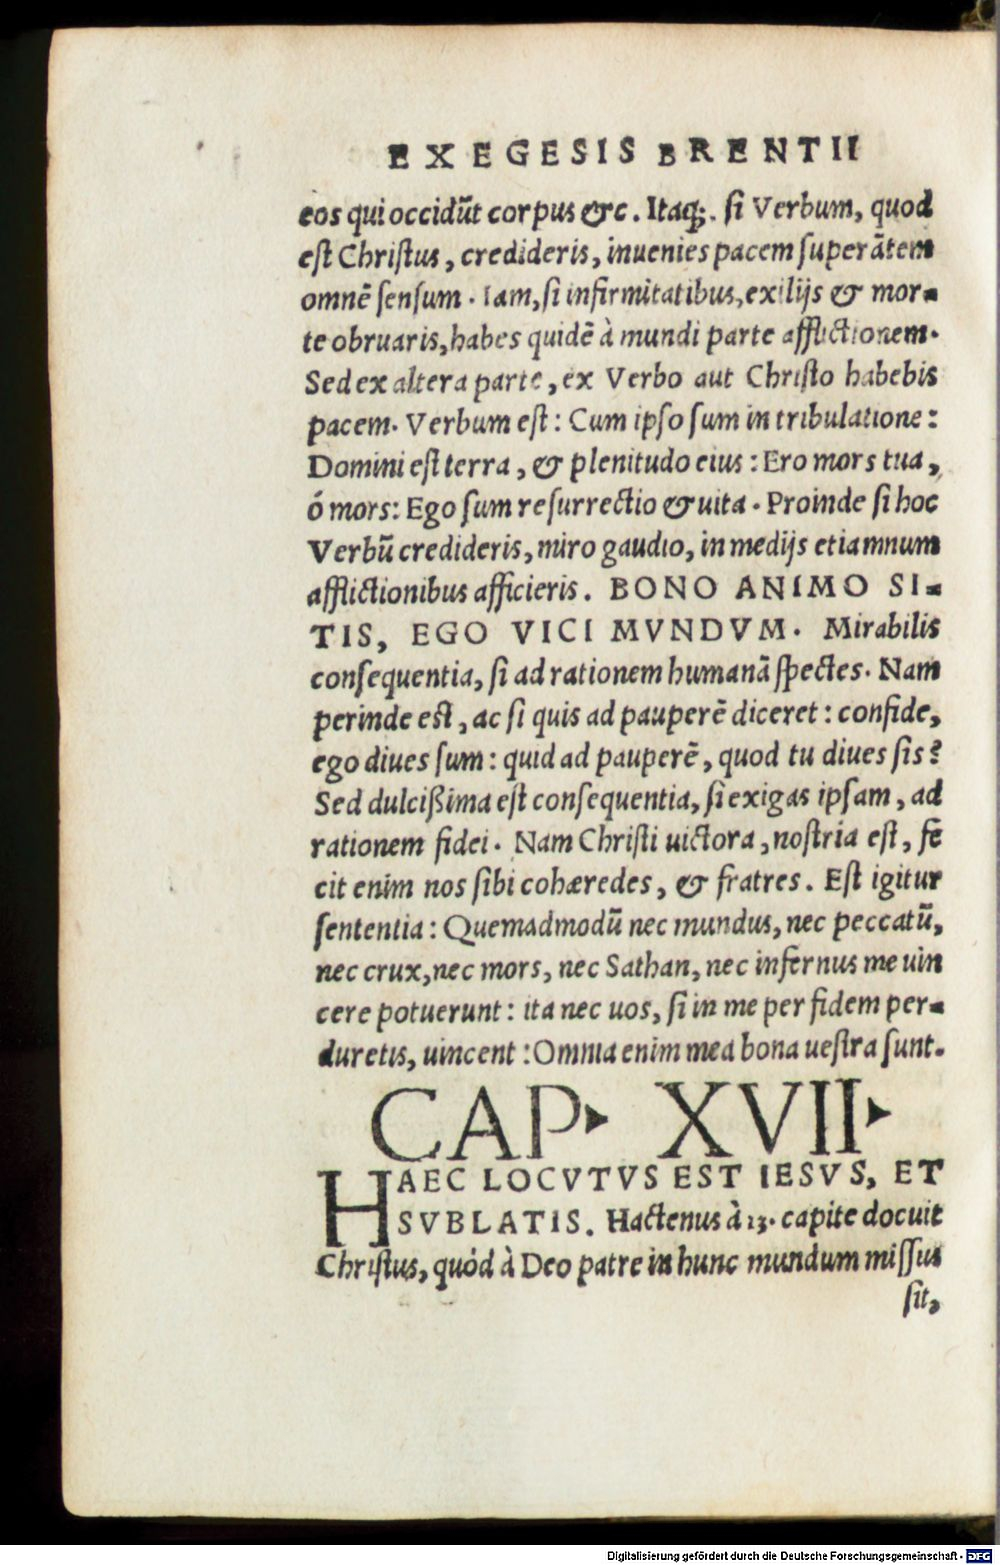 EXEGESIS BRENTII
eos qui occidũt corpus &c. Itaq;. si Verbum, quod
est Christus, credideris, inuenies pacem superãtem
omnẽ sensum. Iam, si infirmitatibus, exilijs & mor-
te obruaris, habes quidẽ à mundi parte afflictionem.
Sed ex altera parte, ex Verbo aut Christo habebis
pacem. Verbum est: Cum ipso sum in tribulatione:
Domini est terra, & plenitudo eius: Ero mors tua,
ó mors: Ego sum resurrectio & uita. Proinde si hoc
Verbũ credideris, miro gaudio, in medijs etiamnum
afflictionibus afficieris. BONO ANIMO SI-
TIS, EGO VICI MVNDVM. Mirabilis
consequentia, si ad rationem humanã spectes. Nam
perinde est, ac si quis ad pauperẽ diceret: confide,
ego diues sum: quid ad pauperẽ, quod tu diues sis?
Sed dulcißima est consequentia, si exigas ipsam, ad
rationem fidei. Nam Christi uictora, nostria est, fẽ
cit enim nos sibi cohæredes, & fratres. Est igitur
sententia: Quemadmodũ nec mundus, nec peccatũ,
nec crux, nec mors, nec Sathan, nec infernus me uin
cere potuerunt: ita nec uos, si in me per fidem per-
duretis, uincent: Omnia enim mea bona uestra sunt.
CAP. XVII.
HAEC LOCVTVS EST IESVS, ET
SVBLATIS. Hactenus à 13. capite docuit
Christus, quòd à Deo patre in hunc mundum missus
sit,
Digitalisierung gefördert durch die Deutsche Forschungsgemeinschaft - DFG